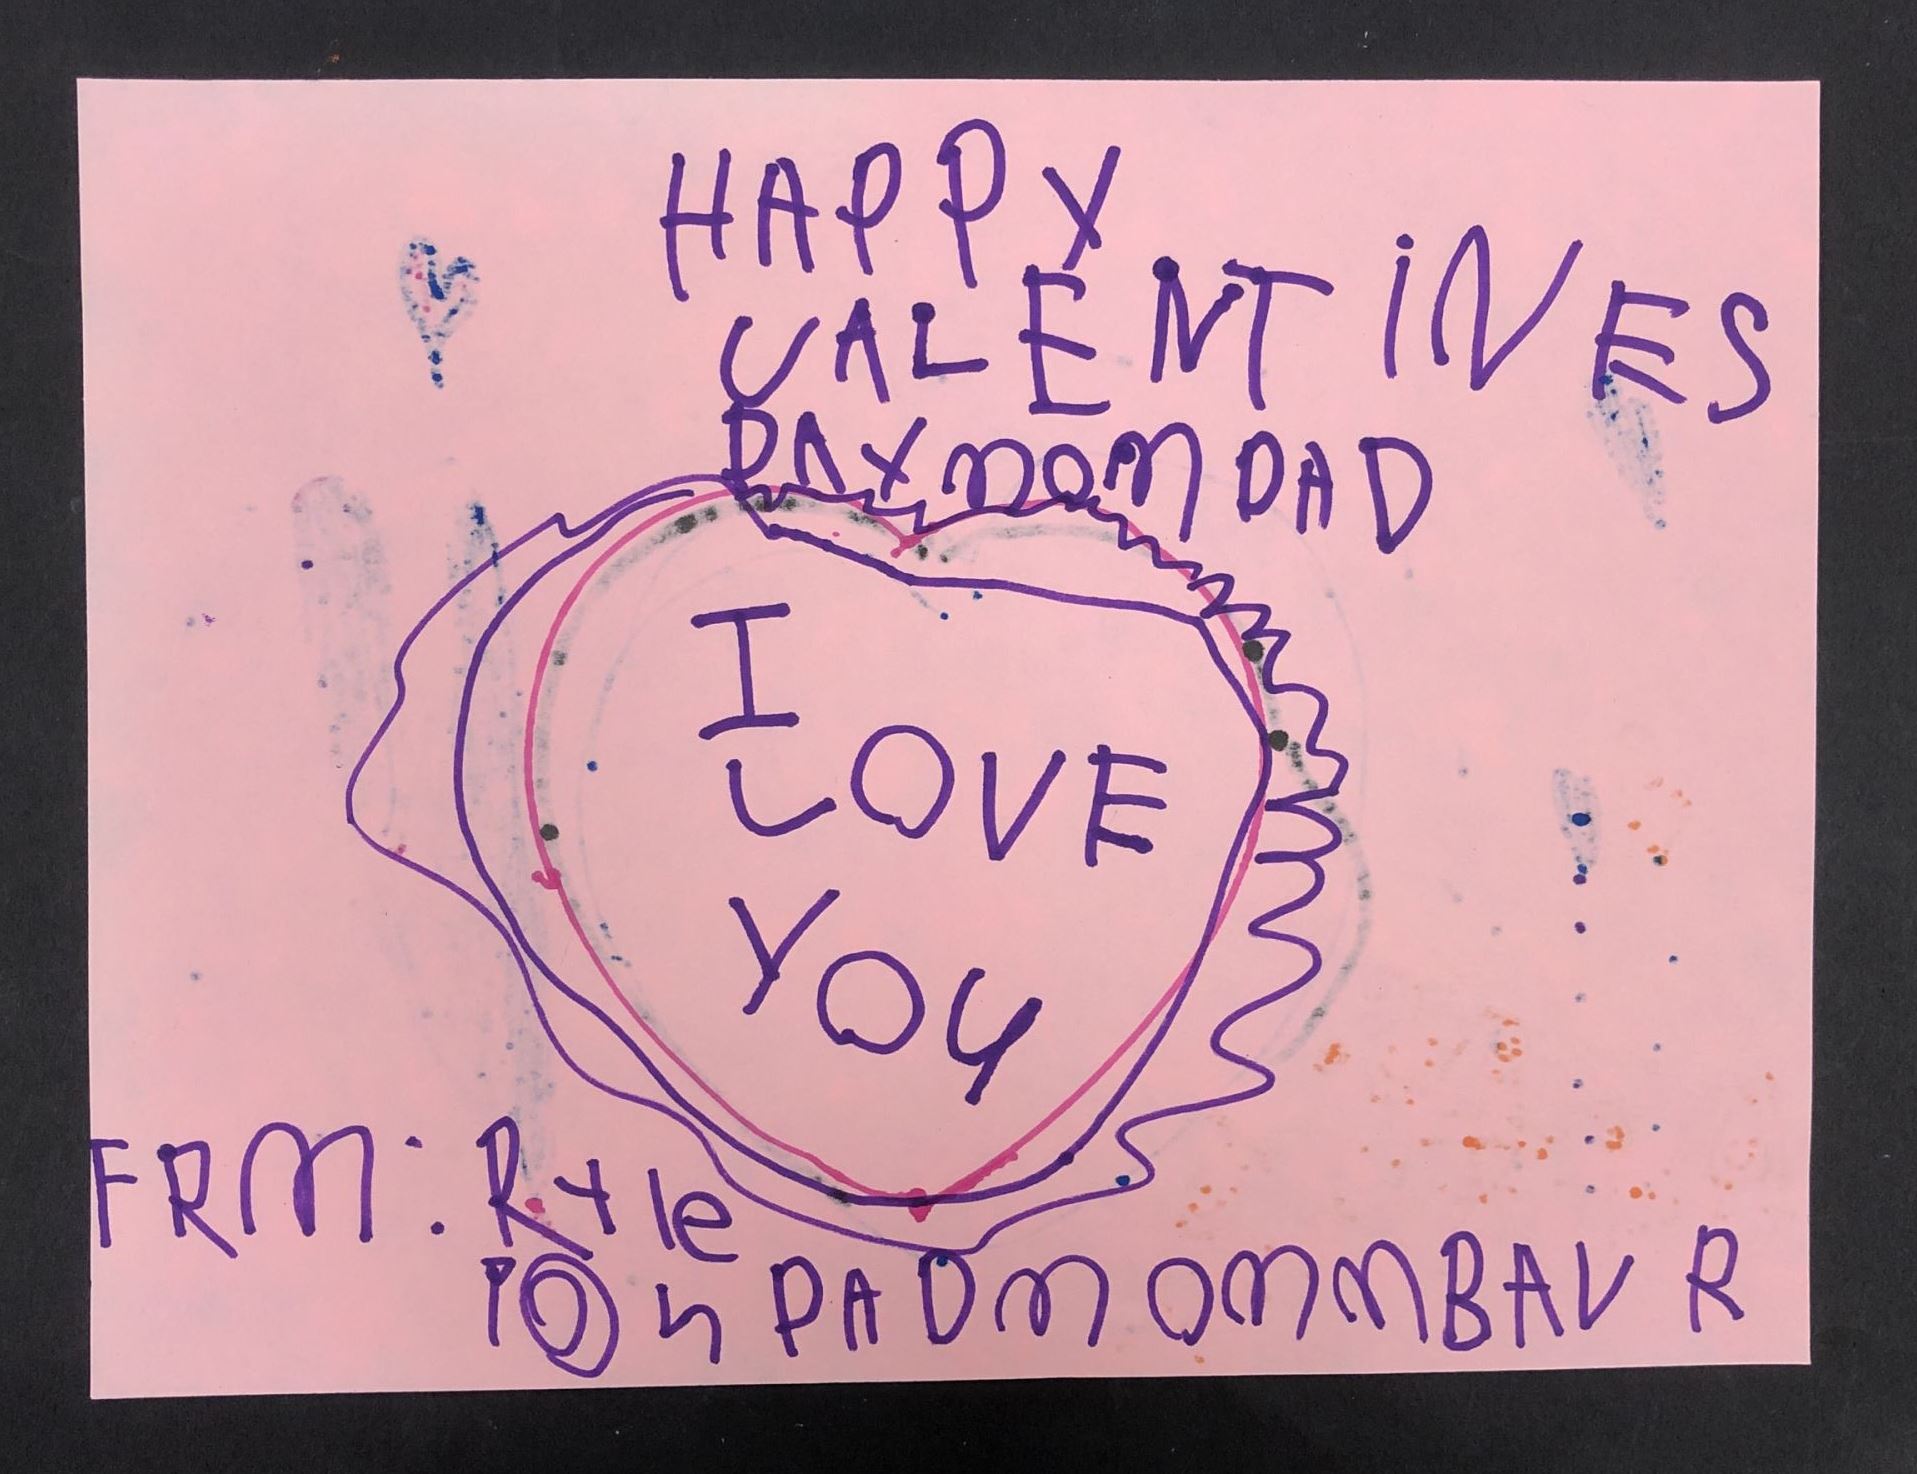 HAPPY
VALENTINES
DAY MOM DAD
I
LOVE
YOU
FRM: Ryle
DAD MOM